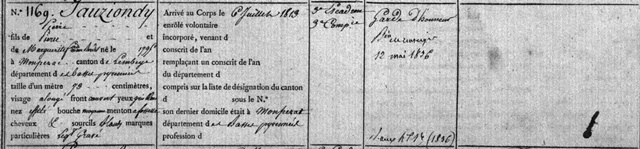 N.° 1169. Jauziondy
Pierre
fils de Pierre
et de Marguerite né le 1795
à Monperat canton de Lembeye
département d es Basses pyrennées
taille d'un mètre 73 centimètres,
visage alongé front couvert yeux
nez bouche moyenne menton
cheveux & sourcils blonds marques
particulières Legt Gravé
Arrivé au Corps le 6 Juillet 1813
enrôlé volontaire
incorporé, venant d
conscrit de l'an
remplaçant un conscrit de l'an
du département d
compris sur la liste de désignation du canton
d sous le N.°
son dernier domicile était à Monperat
département d es Basses pyrennées
profession d
3e Escadron
3e Compie
Garde d'honneur
12 mai 1836
(1836)